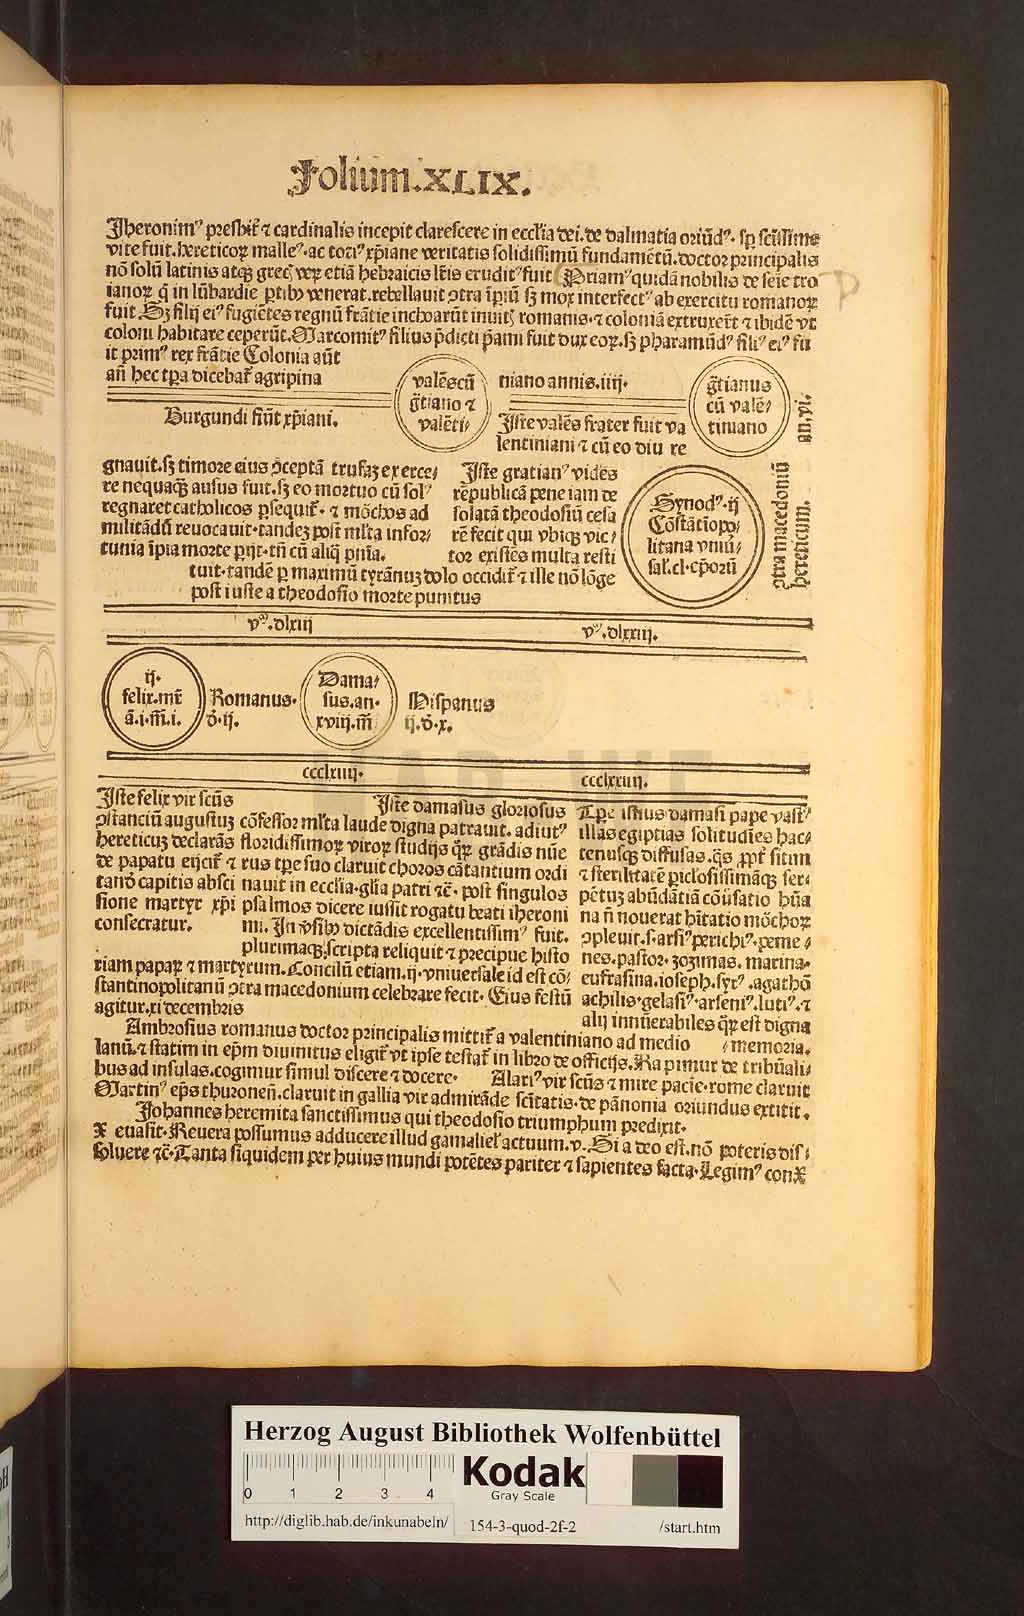 Foliu̅m.XLIX.
Jheronimꝰ presbit̃ ⁊ cardinalis incepit clarescere in ecclĩa dei.de dalmatia oriũdꝰ. sp̃ scũssime
vite fuit.hereticoꝝ malleꝰ.ac totiꝰ xp̃iane veritatis solidissimũ fundamẽtũ.doctor principalis
nõ solũ latinis atqꝫ grecꝭ veꝝ etiã hebraicis lr̃is eruditꝰ fuit Priamꝰ quidã nobilis de seie tro
ianoꝝ q̃ in lũbardie ꝑtibꝰ venerat.rebellauit ꝯtra ĩpiũ sꝫ mox interfectꝰ ab exercitu romanoꝝ
fuit.Sꝫ filij eiꝰ fugiẽtes regnũ frãtie inchoarũt inuitꝭ romanis.⁊ coloniã extruxert̃ ⁊ ibidẽ vt
coloni habitare ceperũt.Marcomitꝰ filius p̃dicti p̃ami fuit dux eoꝝ.sꝫ pharamũdꝰ filiꝰ eiꝰ fu
it primꝰ rex frãtie Colonia aũt
an̄ hec tꝑa dicebat̃ agripina
valẽscũ
g̃tiano ⁊
valẽti⸗
niano annis.iiij.
g̃tianus
cũ valẽ⸗
tiniano
an.vi.
Burgundi fiũt xp̃iani.
Iste valẽs frater fuit va
lentiniani ⁊ cũ eo diu re
gnauit.sꝫ timore eius ꝯceptã trufaꝫ exerce⸗
re nequaqꝫ ausus fuit.sꝫ eo mortuo cũ solꝰ
regnaret catholicos ꝑsequit̃. ⁊ mõchos ad
militãdũ reuocauit.tandeꝫ post ml̃ta infor⸗
tunia ĩpia morte perijt.tñ cũ aliq̃ pñia.
Iste gratianꝰ vidẽs
rẽpublicã pene iam de
solatã theodosiũ cesa
rẽ fecit qui vbiqꝫ vic⸗
tor existẽs multa resti
tuit.tandẽ ꝑ maximũ tyrãnuꝫ dolo occidit̃ ⁊ ille nõ lõge
post iuste a theodosio morte punitus
Synodꝰ.ij
Cõstãtiopo⸗
litana vniũ⸗
sal̃.cl.ep̃orũ
ꝯtra macedoniũ
hereticum.
vᵐ.dlxiij
vᵐ.dlxxiij.
ij.
felix.mr̃
ã.i.m̃.i.
Romanus.
d̃.ij.
Dama⸗
sus.an.
xviij.m̃
Hispanus
ij.d̃.x.
ccclxiiij.
ccclxxiiij.
Iste felix vir scũs
ꝯstanciũ augustuꝫ
hereticuꝫ declarãs
de papatu eijcit̃ ⁊
tandẽ capitis absci
sione martyr xp̃i
consecratur.
Iste damasus gloriosus
cõfessor ml̃ta laude digna patrauit. adiutꝰ
floridissimoꝝ viroꝝ studijs q̃ꝝ grãdis nũe
rus tꝑe suo claruit choros cãtantium ordi
nauit in ecclĩa.glĩa patri ⁊c̃. post singulos
psalmos dicere iussit rogatu beati iheroni
mi. In v̓sibꝰ dictãdis excellentissimꝰ fuit.
plurimaqꝫ.scripta reliquit ⁊ precipue histo
riam papaꝝ ⁊ martyrum.Conciliũ etiam.ij.vniuersale id est cõ⸗
stantinopolitanũ ꝯtra macedonium celebrare fecit. Eius festũ
agitur.xi decembris
Tꝑe istius damasi pape vastꝰ
illas egiptias solitudĩes hac⸗
tenusqꝫ diffusas.q̃s ꝓpt̃ sitim
⁊ sterilitatẽ ꝑiclosissimãqꝫ ser⸗
pẽtuꝫ abũdãtiã cõũsatio hũa
na ñ nouerat hĩtatio mõchoꝝ
ꝯpleuit.s.arsiꝰ perichiꝰ.peme⸗
nes.pastor.zozimas. marina.
eufrasina.ioseph.syrꝰ.agathõ
achilis.gelasiꝰ.arseniꝰ.lutiꝰ.⁊
alij innũerabiles q̃ꝝ est digna
⸗memoria.
Ambrosius romanus doctor principalis mittit̃ a valentiniano ad medio
lanũ.⁊ statim in ep̃m diuinitus eligit̃ vt ipse testat̃ in libro de officijs.Ra pimur de tribũali⸗
bus ad insulas.cogimur simul discere ⁊ docere. Alariꝰ vir scũs ⁊ mire pacie.rome claruit
Martinꝰ ep̃s thuronen̄.claruit in gallia vir admirãde scĩtatis.de pãnonia oriundus extitit.
Johannes heremita sanctissimus qui theodosio triumphum predixit.
X euasit.Reuera possumus adducere illud gamaliel̃ actuum.v.Si a deo est.nõ poteris dis⸗
soluere ⁊c̃.Tanta siquidem per huius mundi potẽtes pariter ⁊ sapientes facta.Legimꝰ conX
Herzog August Bibliothek Wolfenbüttel
0 1 2 3 4
Kodak
Gray Scale
http://diglib.hab.de/inkunabeln/ 154-3-quod-2f-2 /start.htm